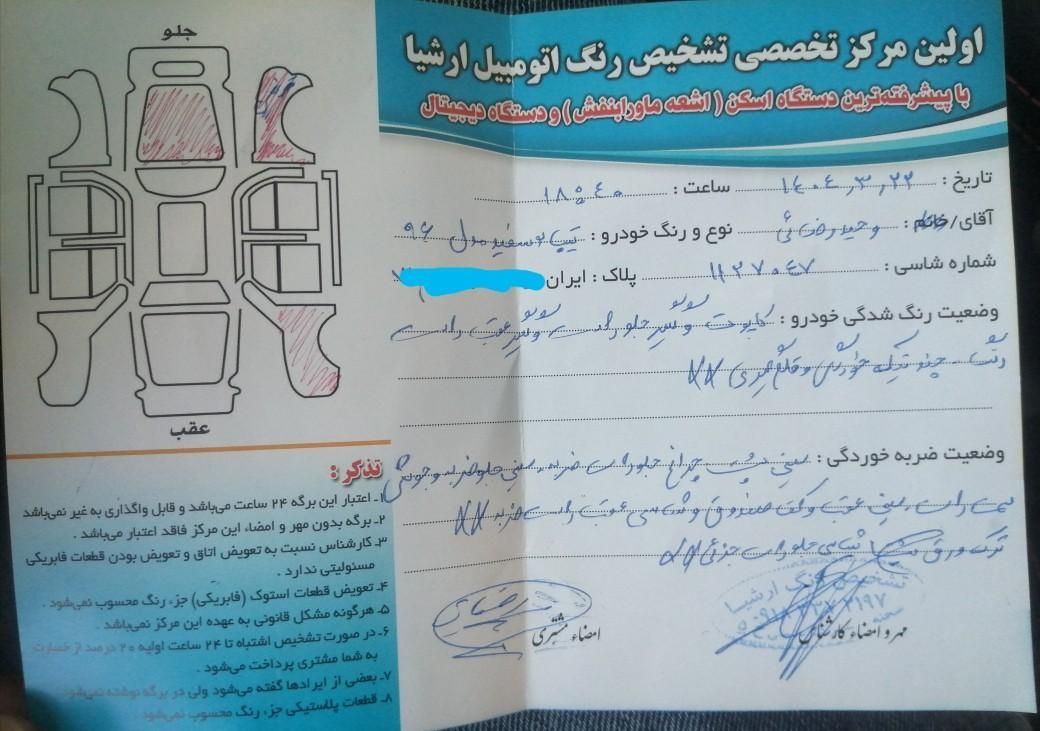 اولین مرکز تخصصی تشخیص رنگ اتومبیل ارشیا
با پیشرفته‌ترین دستگاه اسکن ( اشعه ماورابنفش ) و دستگاه دیجیتال
تاریخ : ۱۴۰۴,۳,۲۲ ساعت : ۱۸:۴۰
آقای/خانم : وحید رضائی نوع و رنگ خودرو : تیبا سفید مدل ۹۶
شماره شاسی : ۱۱۲۷۰۴۷ پلاک : ایران
وضعیت رنگ شدگی خودرو : کاپوت گلگیر جلو راست گلگیر عقب راست
رنگ - چند تیکه خراش و قلم گیری
وضعیت ضربه خوردگی : سینی پشت چراغ جلو راست ضربه. سینی جلو ضربه و جوش
سمت راست سینی عقب و کف صندوق و شاسی عقب راست ضربه
شاسی جلو راست جزئی
تشخیص رنگ ارشیا
مهر و امضاء کارشناس
امضاء مشتری
رضایی
جلو
تعویض
عقب
تذکر :
۱ـ اعتبار این برگه ۲۴ ساعت می‌باشد و قابل واگذاری به غیر نمی‌باشد
۲ـ برگه بدون مهر و امضاء این مرکز فاقد اعتبار می‌باشد .
۳ـ کارشناس نسبت به تعویض اتاق و تعویض بودن قطعات فابریکی
مسئولیتی ندارد .
۴ـ تعویض قطعات استوک (فابریکی) جزء رنگ محسوب نمی‌شود .
۵ـ هرگونه مشکل قانونی به عهده این مرکز نمی‌باشد .
۶ـ در صورت تشخیص اشتباه تا ۲۴ ساعت اولیه ۲۰ درصد از خسارت
به شما مشتری پرداخت می‌شود .
۷ـ بعضی از ایرادها گفته می‌شود ولی در برگه نوشته نمی‌شود .
۸ـ قطعات پلاستیکی جزء رنگ محسوب نمی‌شود .